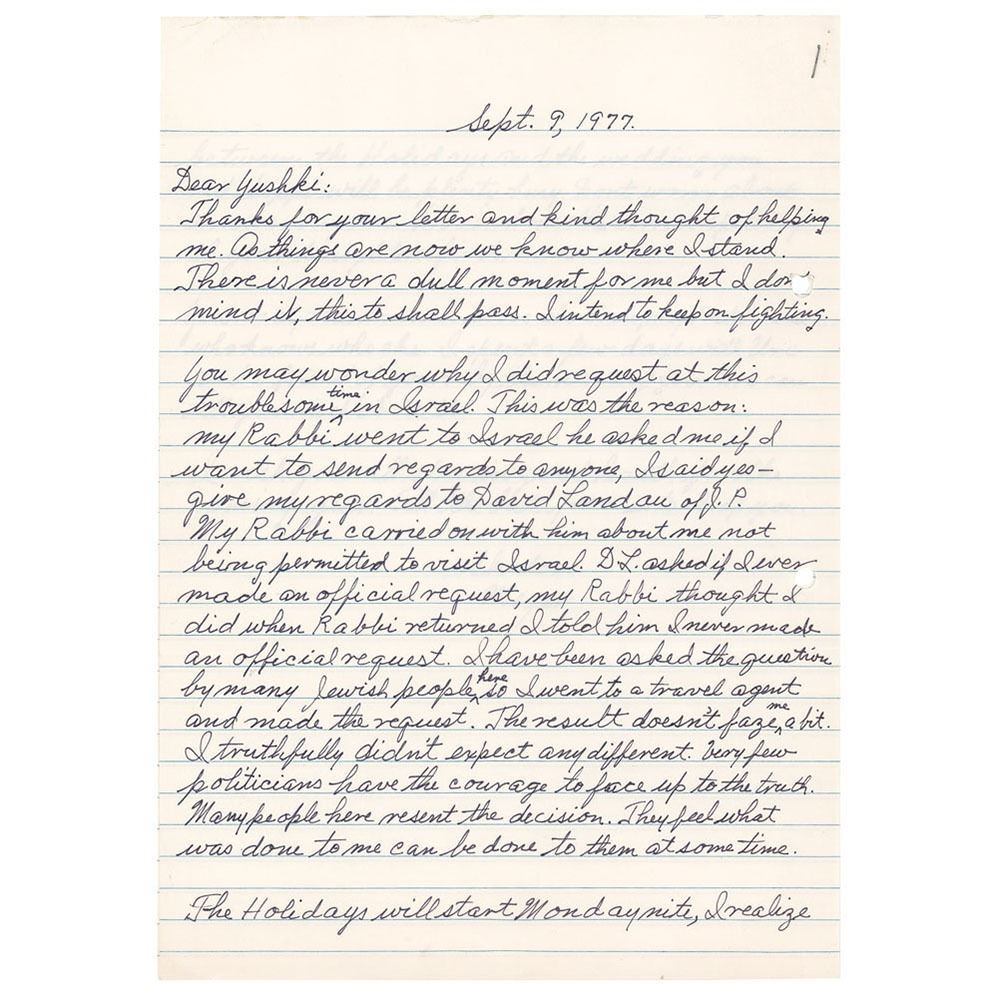 1
Sept. 9, 1977.
Dear Yushki:
Thanks for your letter and kind thought of helping
me. As things are now we know where I stand.
There is never a dull moment for me but I don
mind it, this to shall pass. I intend to keep on fighting.
You may wonder why I did request at this
troublesome time in Israel. This was the reason:
my Rabbi went to Israel he asked me if I
want to send regards to anyone, I said yes—
give my regards to David Landau of J. P.
My Rabbi carried on with him about me not
being permitted to visit Israel. D L. asked if I ever
made an official request, my Rabbi thought I
did when Rabbi returned I told him I never made
an official request. I have been asked the question
by many Jewish people here so I went to a travel agent
and made the request. The result doesn't faze me a bit.
I truthfully didn't expect any different. Very few
politicians have the courage to face up to the truth.
Many people here resent the decision. They feel what
was done to me can be done to them at some time.
The Holidays will start Monday nite, I realize